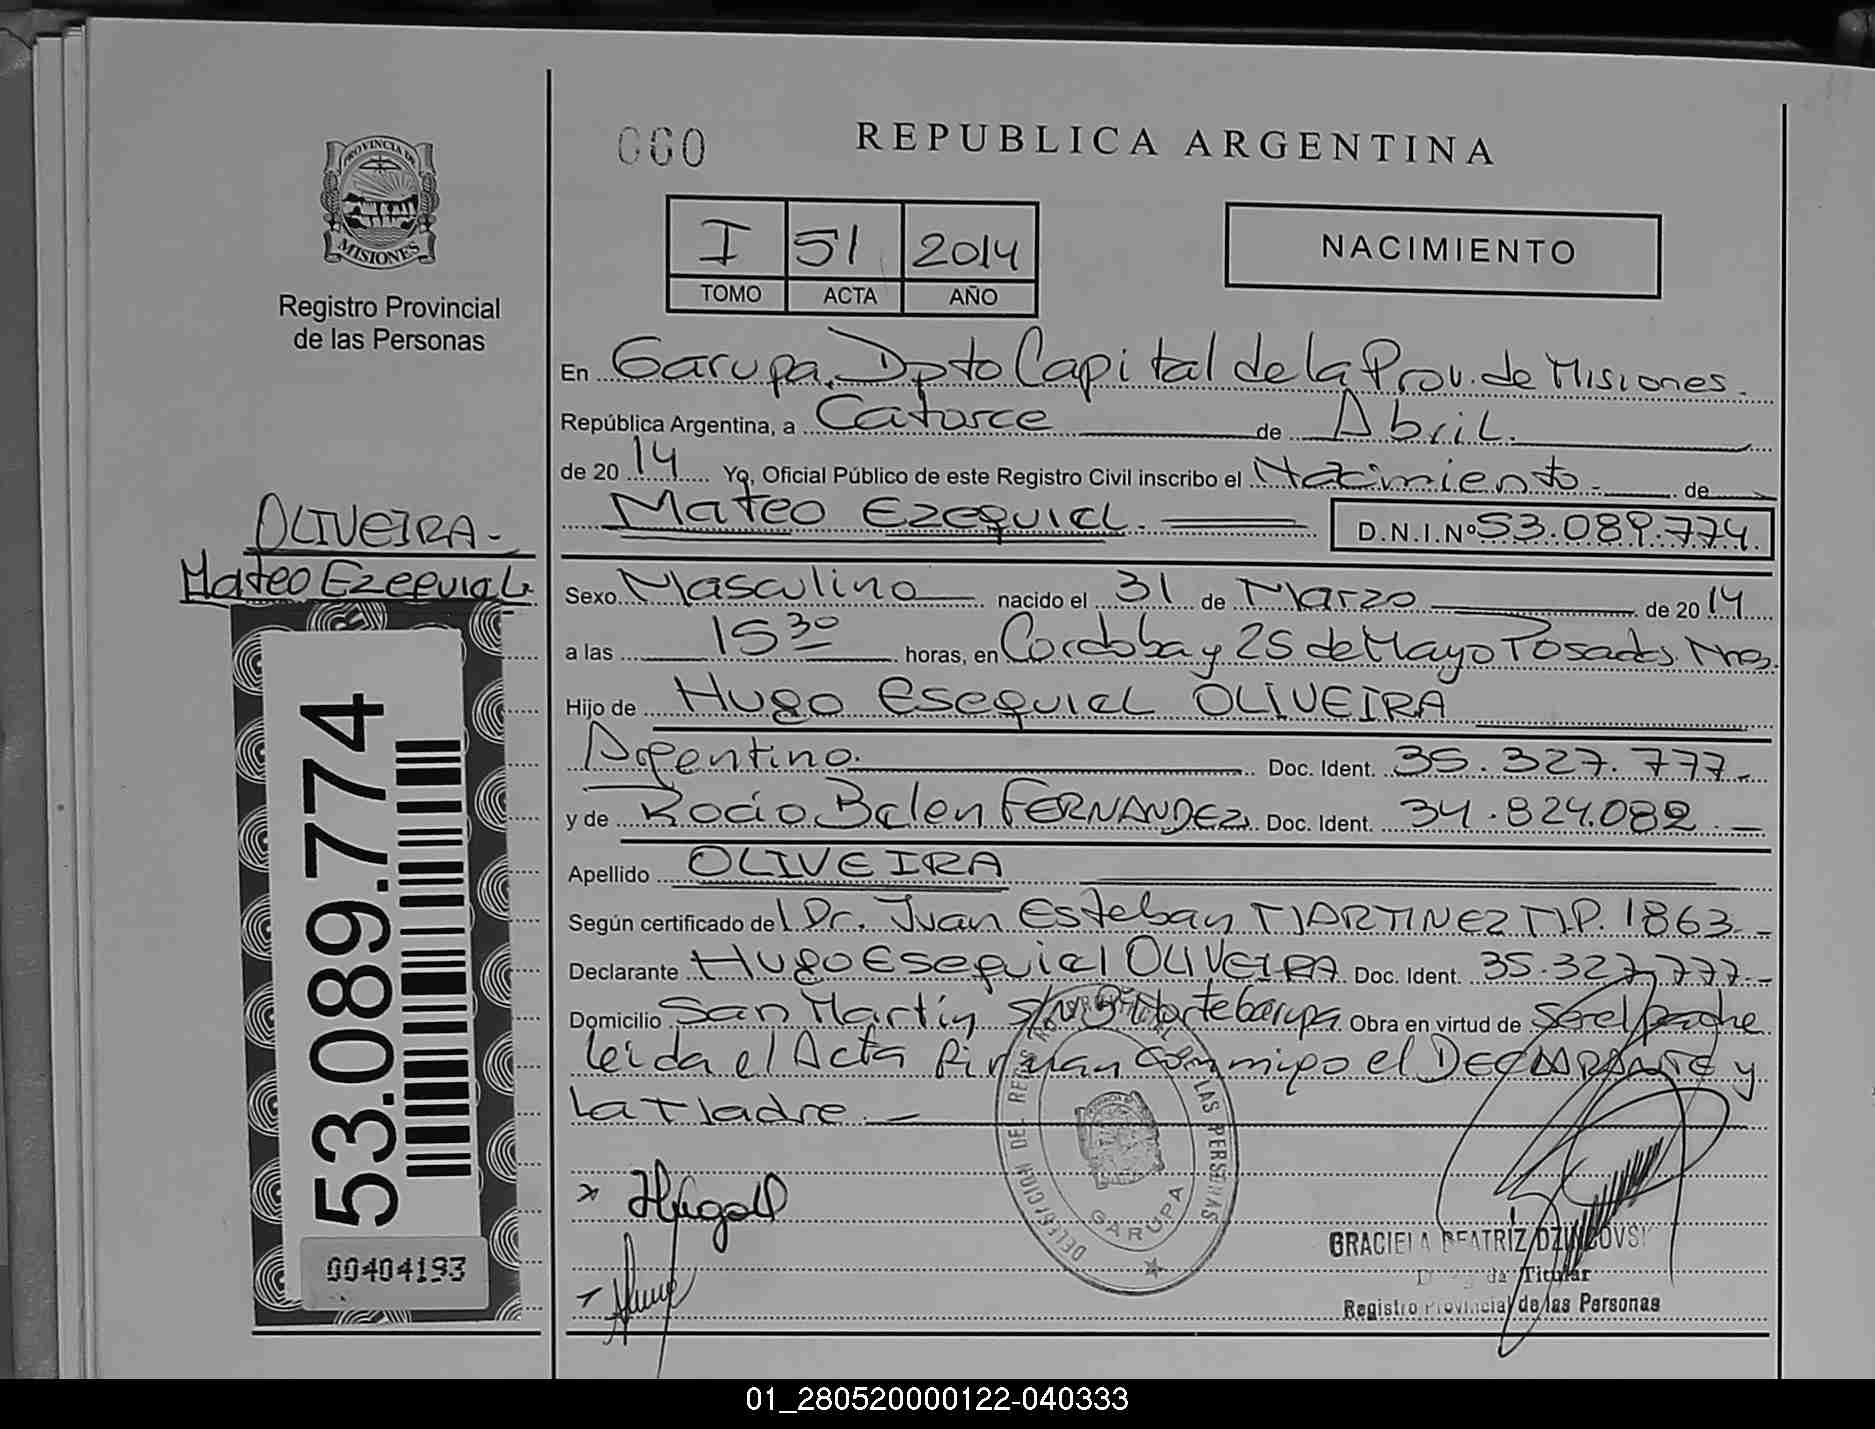 PROVINCIA DE
MISIONES
Registro Provincial
de las Personas
OLIVEIRA-
Mateo Ezequiel
53.089.774
00404193
060
REPUBLICA ARGENTINA
I 51 2014
TOMO ACTA AÑO
NACIMIENTO
En Garupa, Dpto Capital de la Prov. de Misiones.
República Argentina, a Catorce de Abril.
de 20 14 Yo, Oficial Público de este Registro Civil inscribo el Nacimiento- de
Mateo Ezequiel. D.N.I.Nº 53.089.774.
Sexo Masculino nacido el 31 de Marzo de 20 14
a las 15 30 horas, en Cordoba y 25 de Mayo Posadas. Mnes.
Hijo de Hugo Esequiel OLIVEIRA
Argentino. Doc. Ident. 35.327.777-
y de Rocio Belen FERNANDEZ Doc. Ident. 34.824.082 -
Apellido OLIVEIRA
Según certificado de l Dr. Juan Esteban MARTINEZ M.P. 1863-
Declarante Hugo Esequiel OLIVEIRA Doc. Ident. 35.327.777-
Domicilio San Martin s/nº Norte Garupa Obra en virtud de Ser el padre
leida el Acta firman conmigo el DECLARANTE y
La Madre.
DELEGACION DEL REGISTRO PROVINCIAL DE LAS PERSONAS
GARUPA
GRACIELA BEATRIZ
Titular
Registro Provincial de las Personas
01_280520000122-040333